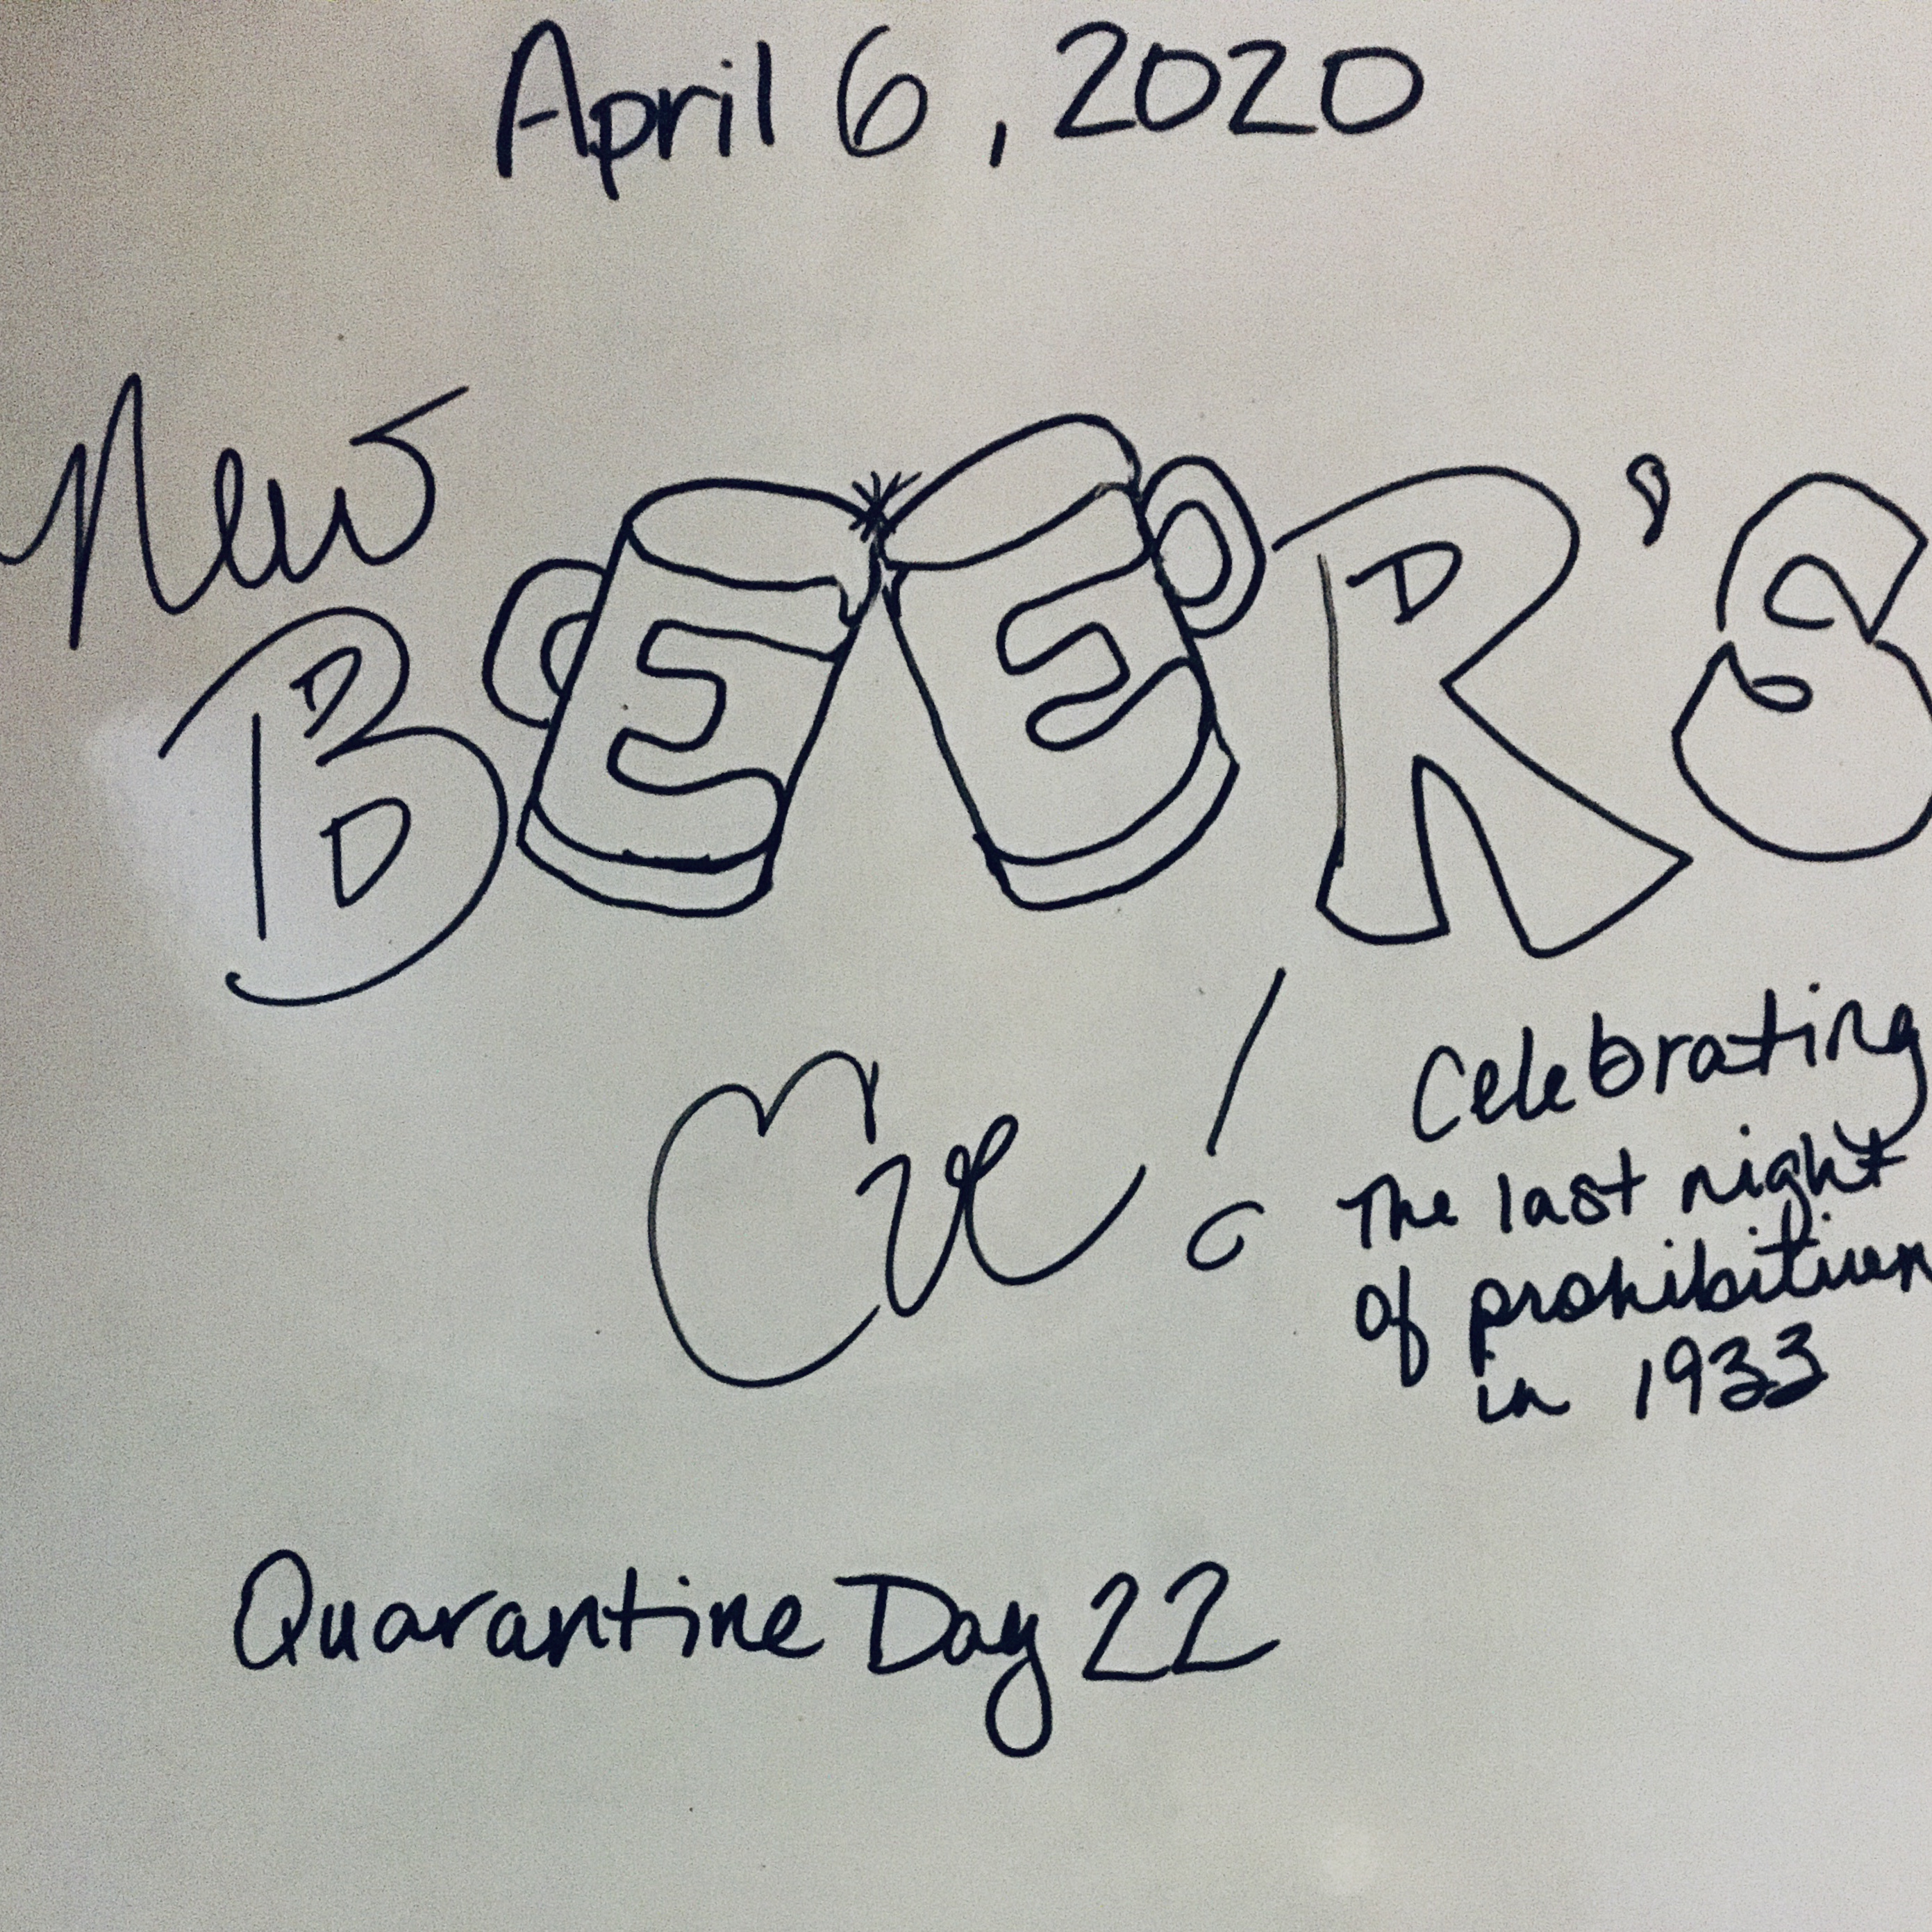 April 6, 2020
New
BEER'S
Eve!
Celebrating
The last night
of prohibition
in 1933
Quarantine Day 22